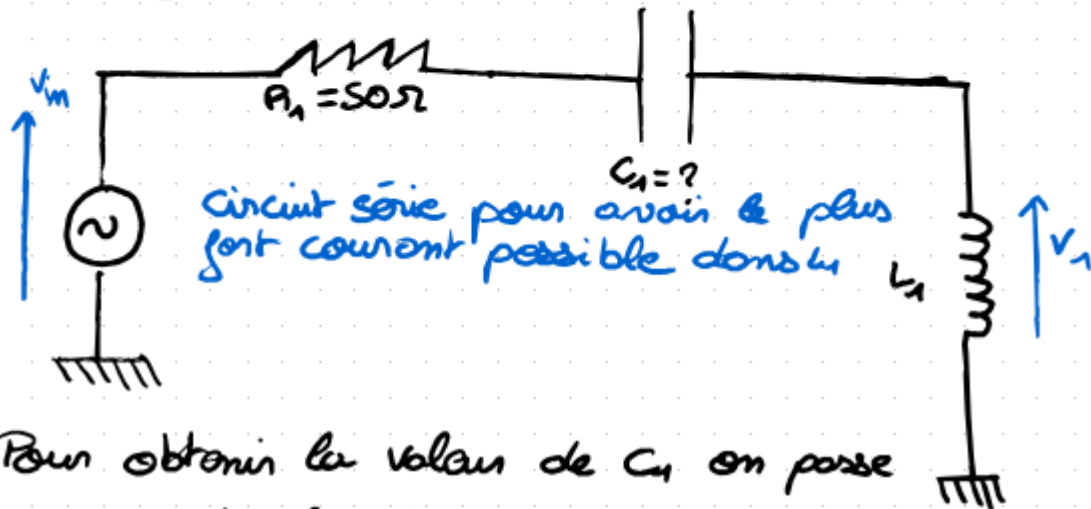 Vin
R₁ = 50Ω
C₁ = ?
circuit série pour avoir le plus
fort courant possible dans L₁
L₁
V₁
Pour obtenir la valeur de C₁ on passe